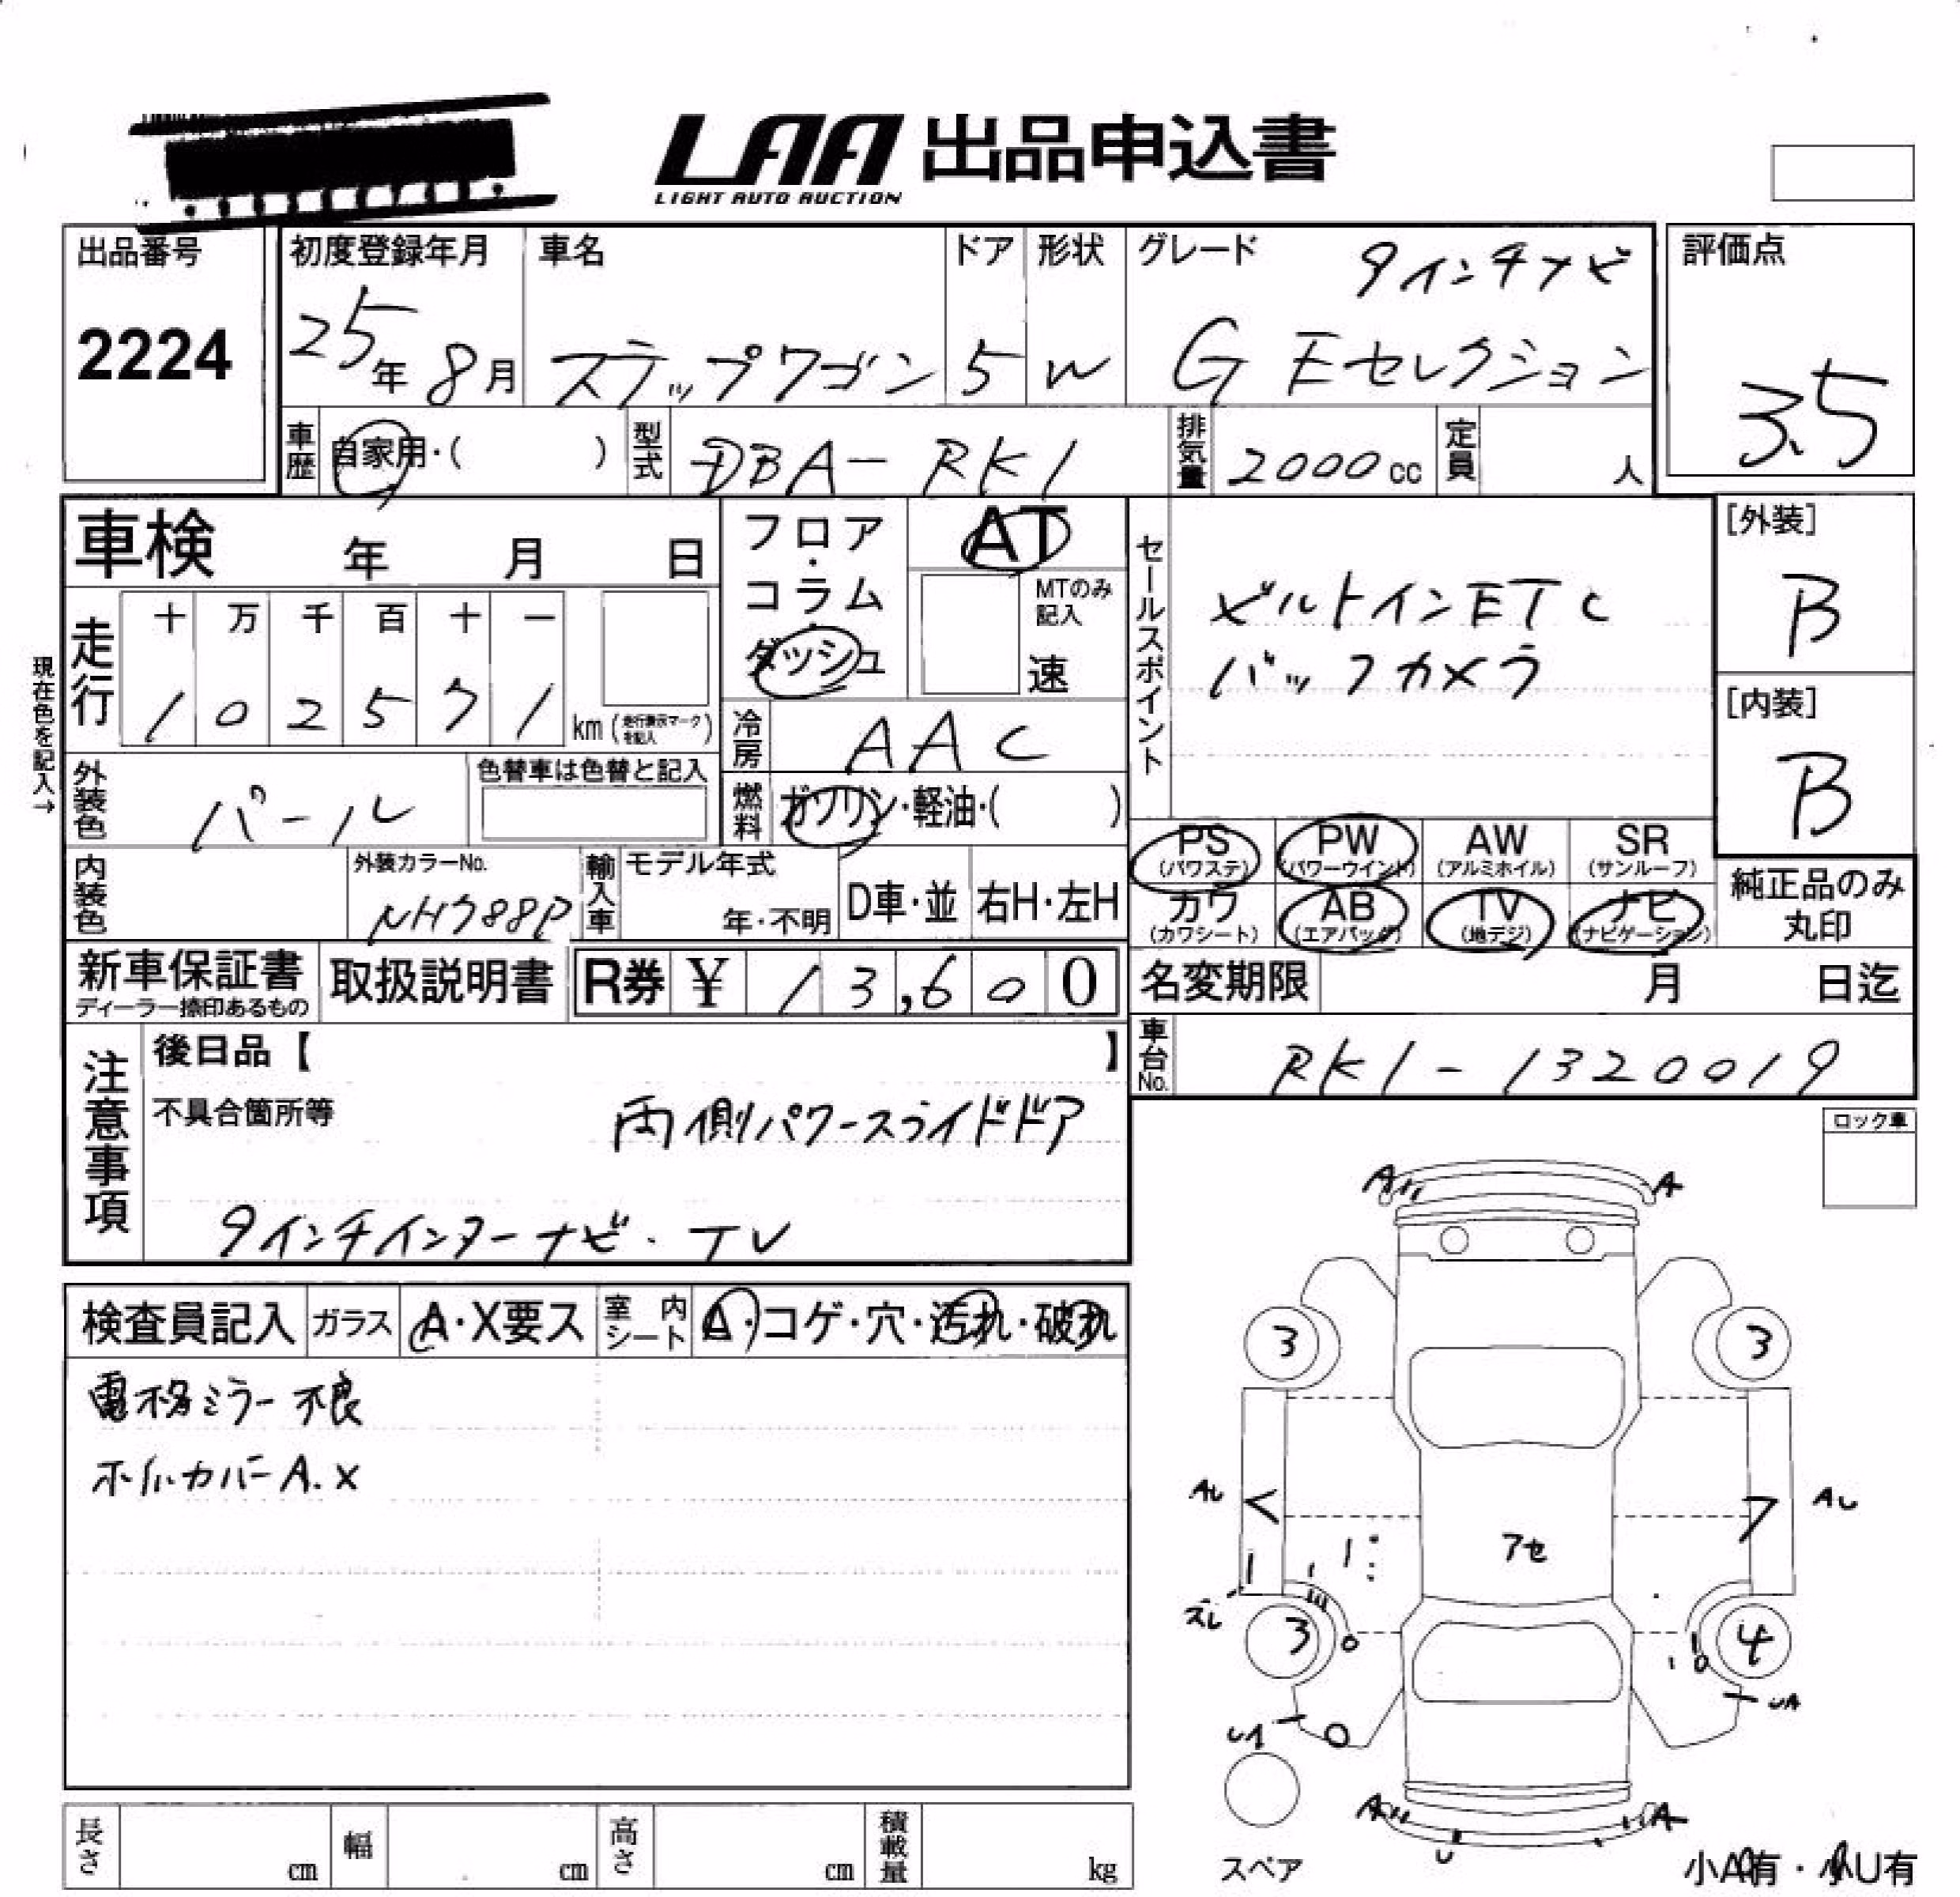 LAA 出品申込書
LIGHT AUTO AUCTION
出品番号
2224
初度登録年月
25年 8月
車名
ステップワゴン
ドア
5
形状
W
グレード
9インチナビ
G Eセレクション
評価点
3.5
車歴 自家用・( )
型式 DBA-RK1
排気量 2000cc
定員 人
車検 年 月 日
フロア・コラム・ダッシュ
AT
MTのみ記入
速
セールスポイント
ビルトインETC
バックカメラ
[外装]
B
[内装]
B
現在色を記入→
走行
十 万 千 百 十 一
1 0 2 5 7 1 km (走行表示マークを記入)
冷房 AAC
外装色 パール
色替車は色替と記入
燃料 ガソリン・軽油・( )
内装色
外装カラーNo.
NH788P
輸入車
モデル年式
年・不明
D車・並
右H・左H
PS (パワステ)
PW (パワーウインド)
AW (アルミホイル)
SR (サンルーフ)
カワ (カワシート)
AB (エアバッグ)
TV (地デジ)
ナビ (ナビゲーション)
純正品のみ丸印
新車保証書
ディーラー捺印あるもの
取扱説明書
R券 ¥ 13,600
名変期限 月 日迄
車台No. RK1-1320019
注意事項
後日品【 】
不具合箇所等
両側パワースライドドア
9インチインターナビ・TV
ロック車
検査員記入
ガラス A・X要ス
室内シート A・コゲ・穴・汚れ・破れ
電格ミラー不良
ホイルカバーA.X
A A
3 3
AU AU
アセ
ズレ
3 4
UA UA
A A
U
スペア
小A有・小U有
長さ cm
幅 cm
高さ cm
積載量 kg